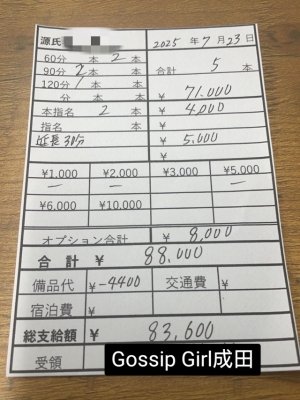 源氏
2025年7月23日
60分 本 2 本
90分 2 本 本
合計 5 本
120分 1 本 本
分 本 本
¥ 71,000
本指名 2 本
¥ 4,000
指名 本
¥
延長30分
¥ 5,000
¥1,000 ¥2,000 ¥3,000 ¥5,000
— — —
¥6,000 ¥10,000
オプション合計 ¥ 8,000
合計 ¥ 88,000
備品代 ¥-4400 交通費 ¥
宿泊費 ¥ ¥
総支給額 ¥ 83,600
受領
Gossip Girl成田